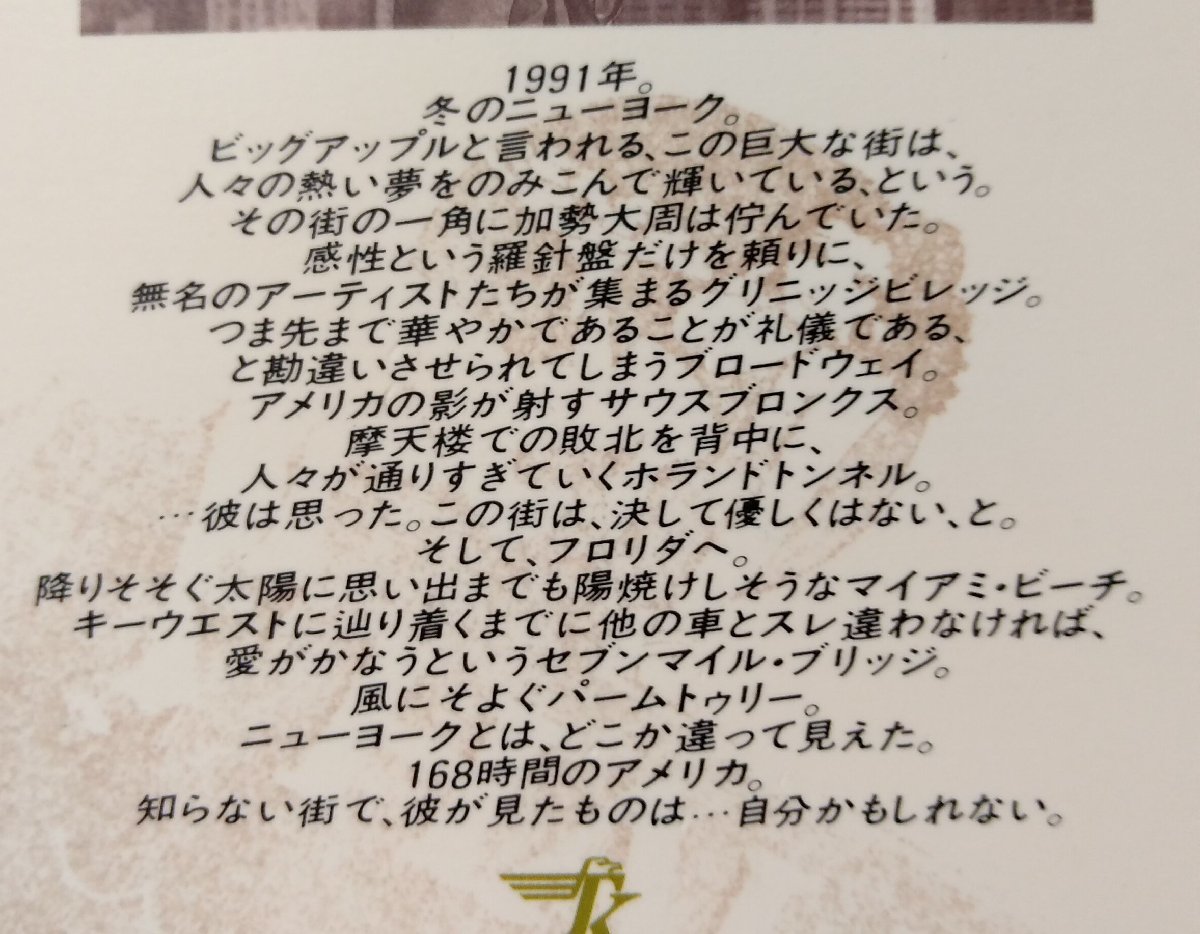 1991年。
冬のニューヨーク。
ビッグアップルと言われる、この巨大な街は、
人々の熱い夢をのみこんで輝いている、という。
その街の一角に加勢大周は佇んでいた。
感性という羅針盤だけを頼りに、
無名のアーティストたちが集まるグリニッジビレッジ。
つま先まで華やかであることが礼儀である、
と勘違いさせられてしまうブロードウェイ。
アメリカの影が射すサウスブロンクス。
摩天楼での敗北を背中に、
人々が通りすぎていくホランドトンネル。
…彼は思った。この街は、決して優しくはない、と。
そして、フロリダへ。
降りそそぐ太陽に思い出までも陽焼けしそうなマイアミ・ビーチ。
キーウエストに辿り着くまでに他の車とスレ違わなければ、
愛がかなうというセブンマイル・ブリッジ。
風にそよぐパームトゥリー。
ニューヨークとは、どこか違って見えた。
168時間のアメリカ。
知らない街で、彼が見たものは…自分かもしれない。
K